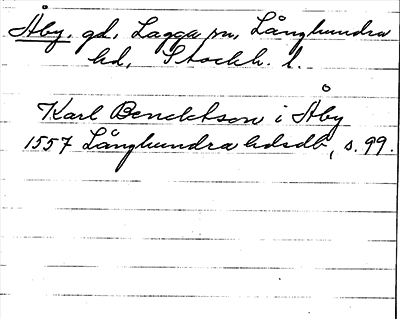 Åby. gd, Lagga sn, Långhundra
hd, Stockh. l.
Karl Bencktson i Åby
1557 Långhundra hdsdb, s. 99.